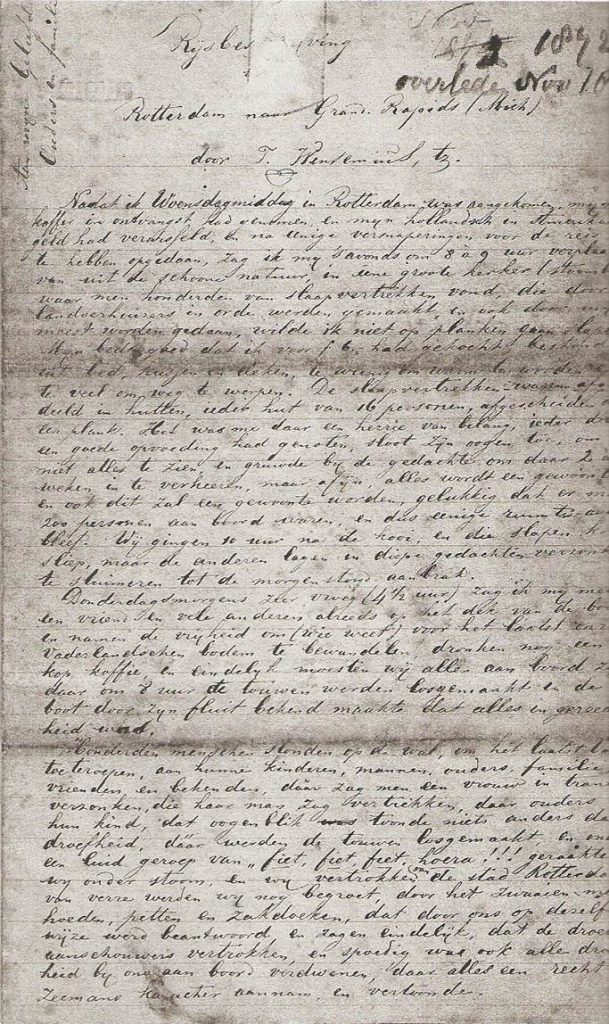 Aan mijne Geliefde
Ouders en familie
1892
overleden Nov 10
Rijsbes ving
Rotterdam naar Grand. Rapids (Mich)
door T. tz.
Nadat ik Woensdagmiddag in Rotterdam was aangekomen, mijn
koffer in ontvangst had genomen, en mijn hollandsch in Amerik
geld had verwisseld, en na eenige versnaperingen voor de rei
te hebben opgedaan, zag ik mij 's avonds om 8 a 9 uur verplaa
van uit de schoone natuur in eene groote kerker (stoom
waar men honderden van slaapvertrekken vond, die door
landverhuizers in orde werden gemaakt, en ook door mij
moest worden gedaan, wilde ik niet op planken gaan slaa
Mijn beddegoed dat ik voor f 6, had gekocht bestond
uit bed, kussen en deken, te weinig om warm te worden en
te veel om weg te werpen. De slaapvertrekken waren afge
deeld in hutten, ieder hut van 16 personen, afgescheiden
een plank. Het was me daar een herrie van belang, ieder die
een goede opvoeding had genoten, sloot zijn oogen toe, om
niet alles te zien, en gruwde bij de gedachte om daar 2 a
weken in te verkeeren, maar afijn, alles wordt een gewoon
en ook dit zal een gewoonte worden, gelukkig dat er m
200 personen aan boord waren, en dus eenige ruimte
bleef. Wij gingen 10 uur na de kooi, en die slapen k
sliep, maar de anderen lagen in diepe gedachten verzonk
te sluimeren tot de morgenstond aanbrak.
Donderdagsmorgens zeer vroeg (4½ uur) zag ik mij me
een vriend en vele anderen alreeds op het dak van de bo
en namen de vrijheid om (wie weet) voor het laatst onze
Vaderlandschen bodem te bewandelen, dronken nog een
kop koffie en eindelijk moesten wij allen aan boord z
daar om 8 uur de touwen werden losgemaakt en de
boot door zijn fluit bekend maakte dat alles in gereed
heid was.
Honderden menschen stonden op de wal, om het laatst
toeteroepen, aan hunne kinderen, mannen, ouders, familie
vrienden, en bekenden, dáár zag men een vrouw in tran
verzonken, die haar man zag vertrekken, daar ouders
hun kind, dat oogenblik toonde niets anders da
droefheid, dáár werden de touwen losgemaakt en on
een luid geroep van „fiet, fiet, fiet, hoera!!! geraakte
wij onder stoom, en wij vertrokken van de stad Rotterda
van verre werden wij nog begroet, door het zwaaien m
hoeden, petten en zakdoeken, dat door ons op dezelf
wijze werd beantwoord en zagen eindelijk, dat de droe
aanschouwers vertrokken, en spoedig was ook alle dro
heid bij ons aan boord verdwenen, daar alles een recht
Zeemans karacher aannam, en vertoonde.